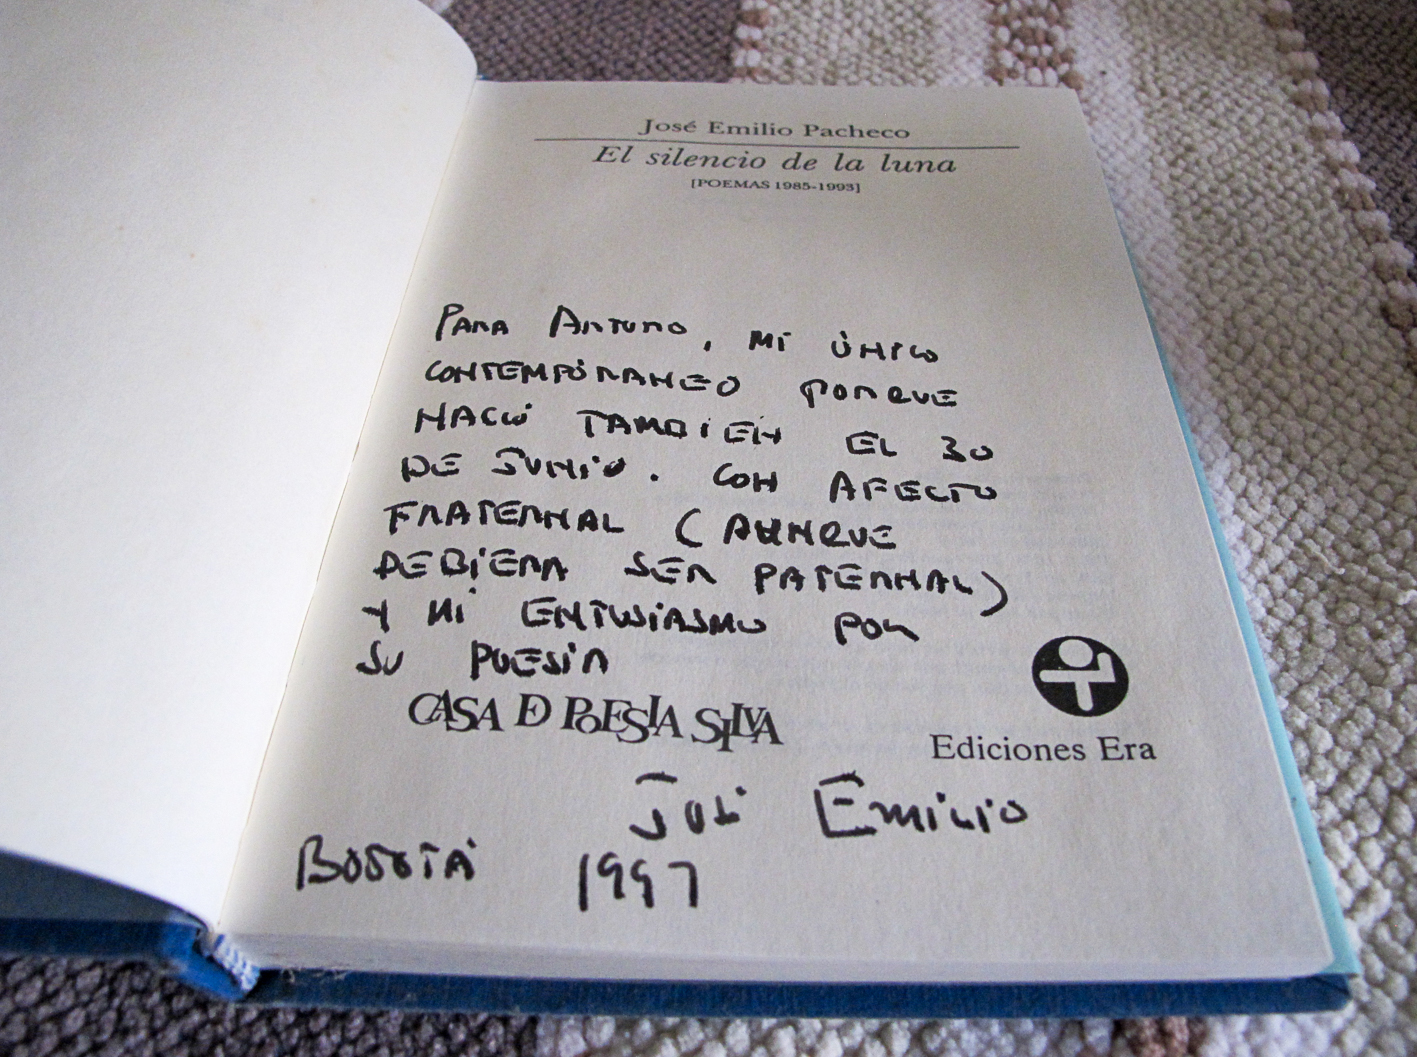 José Emilio Pacheco
El silencio de la luna
[POEMAS 1985-1993]
PARA ANTONIO, MI ÚNICO
CONTEMPORÁNEO PORQUE
NACIÓ TAMBIÉN EL 30
DE JUNIO. CON AFECTO
FRATERNAL (AUNQUE
DEBIERA SER PATERNAL)
Y MI ENTUSIASMO POR
SU POESÍA
CASA DE POESIA SILVA
Ediciones Era
JOSÉ EMILIO
BOGOTÁ 1997